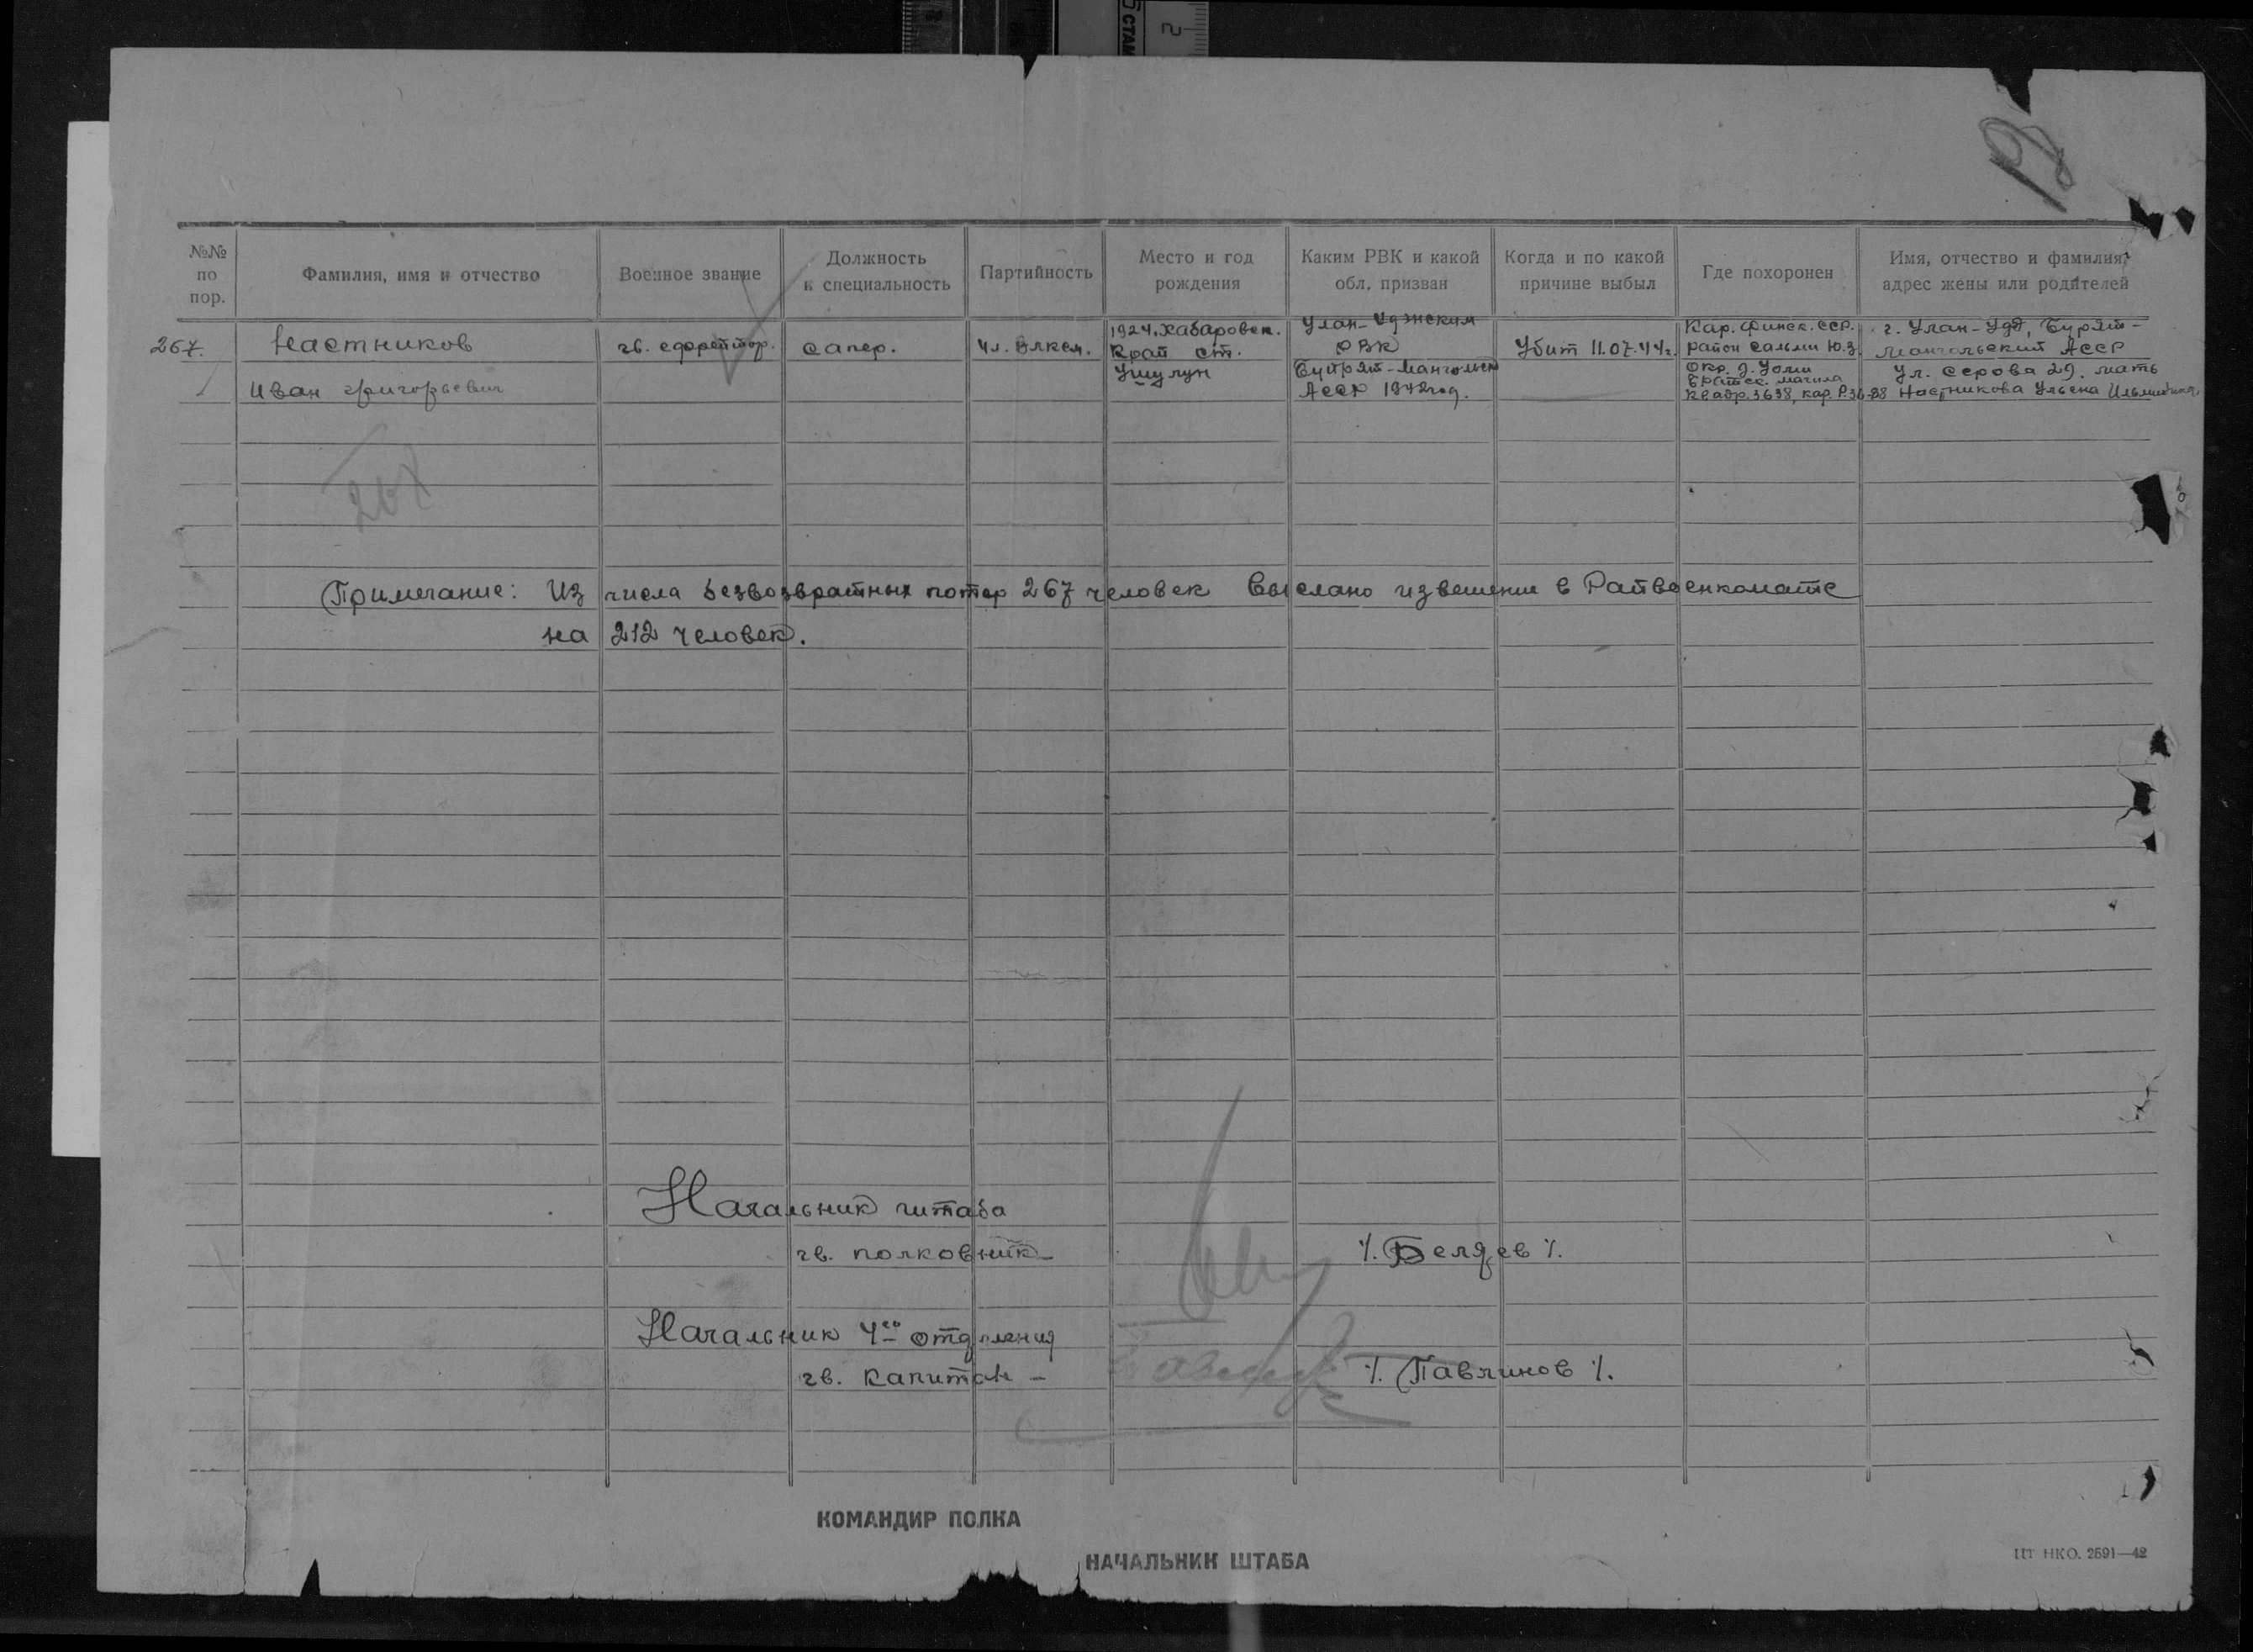 5 СТАМ
2
№№ по пор.
Фамилия, имя и отчество
Военное звание
Должность и специальность
Партийность
Место и год рождения
Каким РВК и какой обл. призван
Когда и по какой причине выбыл
Где похоронен
Имя, отчество и фамилия, адрес жены или родителей
267.
Настников
Иван Григорьевич
гв. ефрейтор.
сапер.
Чл. Влксм.
1924, Хабаровск.
Край ст.
Ушулун
Улан-Удэнским
РВК
Буйрят-Мангольск
АССР 1942год.
Убит 11.07.44г.
Кар. Финск. ССР.
район Сальми Ю.З.
Окр. д. Уоми
Братск. магила
Квадр. 3638, кар. Р.36-28
г. Улан-Удэ, Бурят-
Мангольский АССР
Ул. Серова 29. мать
Настникова Ульяна
267
Примечание: Из числа безвозвратных потер 267 человек выслано извешение в Райвоенкомате
на 212 человек.
Начальник штаба
гв. полковник -
/. Беляев /.
Начальник 4го отделения
гв. капитан -
/. Павлинов /.
КОМАНДИР ПОЛКА
НАЧАЛЬНИК ШТАБА
ЦТ НКО. 2591—42